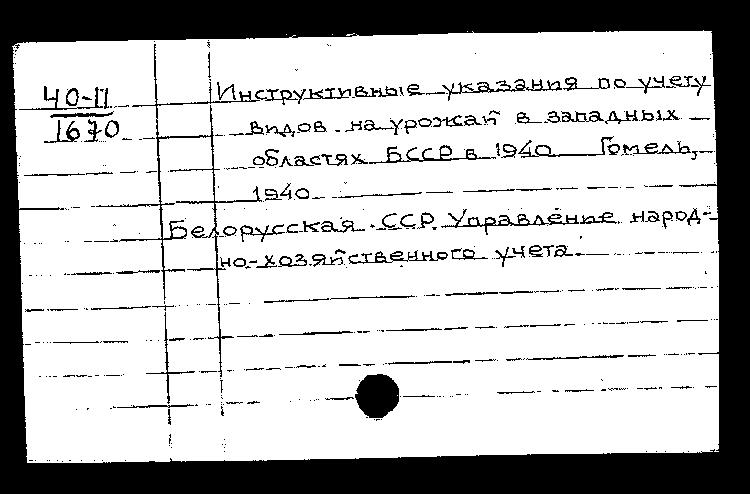 40-11
1670
Инструктивные указания по учету
видов на урожай в западных
областях БССР в 1940 Гомель,
1940
Белорусская ССР. Управление народ-
но-хозяйственного учета.